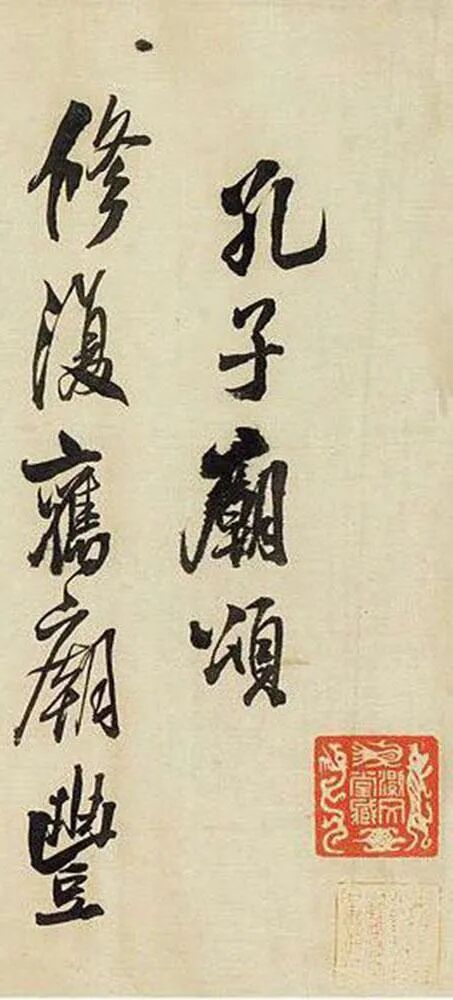 孔子廟頌
修復舊廟豐